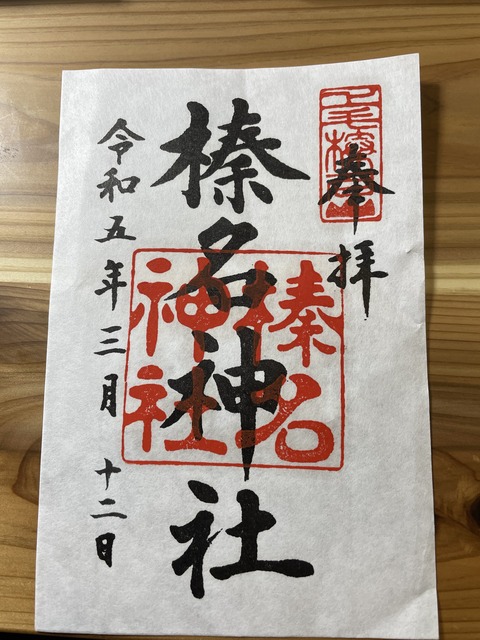 上毛榛名山
奉拝
榛名神社
榛名
神社
令和五年三月十二日